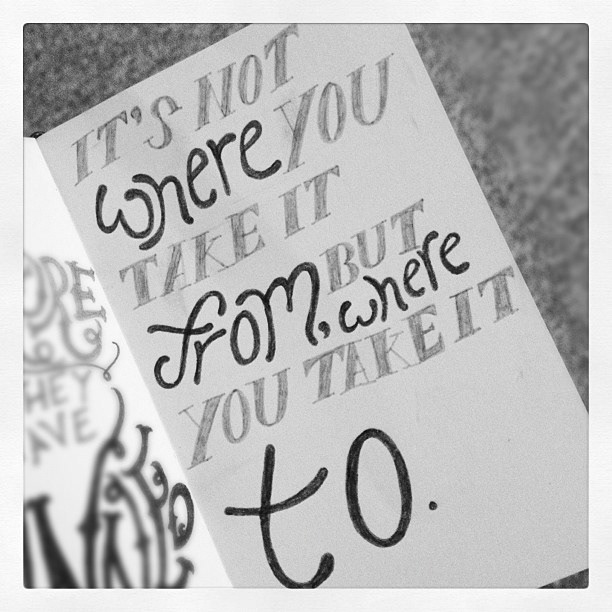 IT'S NOT
where YOU
TAKE IT
from, BUT
where
YOU TAKE IT
to.